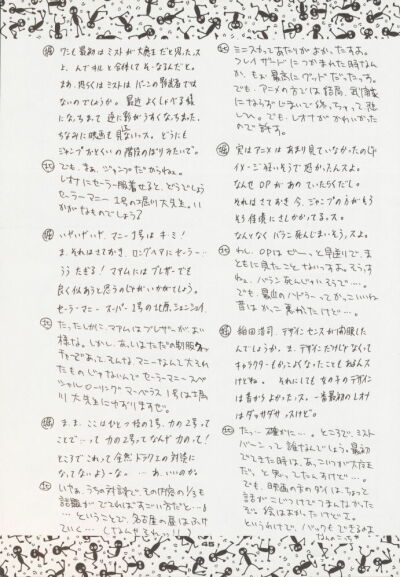 ミニスカってあたりがよかったすね。
フレイザードにつかまれた時なん
か、もぉ、最高にグッドだったっす。
でも、アニメの方では結局、武闘家
にならずじまいで終っちゃって悲
しい。でも、レオナがかわいかった
ので許す。
堀 実はアニメはあまり見ていなかったのじゃ
なんせOPがあのていたらくだし。
それはさておき今、ジャンプの方がもう
なんとなくバラン死んじまいそうっスよ。
北 わし、OPはぜーっと見逃りで、ま
ともに見たことないっすねぇ。そうす
ねぇ、バラン死んじゃいそうで…。
でも、最近のハドラーってかっこいいね
昔はかっこ悪かったけど…。
堀 稲田浩司、デザインセンスが開眼した
んでしょうか。ま、デザインだけじゃなくって
キャラクターもかっこよくなったこともあるんス
けどね。それにしても女の子のデザイン
は昔からよかったっス。一番最初のレオナ
はダッサダサっスけど。
北 たっ…確かに…。ところで、ミスト
バーンって誰なんでしょう。最初
でてきた時は、あっこいつが大魔王
だっと思ってたんすけど…。
でも、映画の方のダイは、ちょっと
話がこじつけでつまんなかった
ぞ。絵はよかったけどぉ。
というわけで、バックもできるよな
堀 ワシも最初はミストが大魔王だと見たっス
よ、んで
まあ、恐らくはミストはバーンの影武者では
ないのでしょうか。最近よくしゃべる様
になっちまって逆に影がうすくなっちまった。
ちなみに映画も見ないっス。どうにも
ジャンプおとくいの階段のぼりみたいで。
北 でも、まぁ、ジャンプだからねぇ。
レオナにセーラー服着せると、どうでしょう
セーラーマニー1号の堀川大先生。い
かがなものでしょう?
堀 いやいやいや、マニー1号はキミ!
ま、それはさておき、ロングヘアにセーラー…
うう たぎる! マァムにはブレザーでも
良く似あうと思うのじゃがいかがでしょう。
セーラーマニースーパー1号の北原
北 たったしかに、マァムはブレザーがよい
様な。しかし、あっしはただの制服
あって、そんな、マニーなんて大それ
たものじゃないんで、セーラーマニースペ
シャルローリングマーベラス1号は堀
川大先生にゆずりますぜ。
堀 ま、ま、ここはひとつ技の1号、力の2号って
ことで…って力の2号ってなんで力って!
ところでこれって全然ドラクエの対談に
なってないよーな。…あ、いいのか
北 いやぁ、うちの対談で、その内容の1/5も
話題がでてればすごい方だと…。
…ということで、名古屋の昼はふけ
ていく…